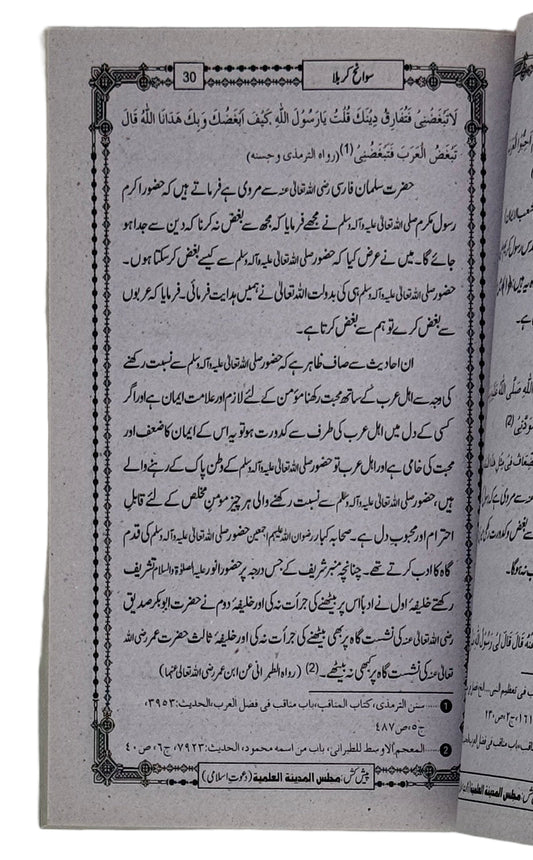 سوانح کربلا
30
لَا تَبْغَضْنِیْ فَتُفَارِقَ دِیْنَکَ قُلْتُ یَارَسُوْلَ اللّٰہِ کَیْفَ اَبْغَضُکَ وَبِکَ ھَدَانَا اللّٰہُ قَالَ
تَبْغَضُ الْعَرَبَ فَتَبْغَضُنِیْ (1) (رواہ الترمذی وحسنہ)
حضرت سلمان فارسی رضی اللہ تعالیٰ عنہ سے مروی ہے فرماتے ہیں کہ حضور اکرم
رسول مکرم صلی اللہ تعالیٰ علیہ واٰلہ وسلم نے مجھے فرمایا کہ مجھ سے بغض نہ کرنا کہ دین سے جدا ہو
جائے گا۔ میں نے عرض کیا کہ حضور صلی اللہ تعالیٰ علیہ واٰلہ وسلم سے کیسے بغض کر سکتا ہوں۔
حضور صلی اللہ تعالیٰ علیہ واٰلہ وسلم ہی کی بدولت اللہ تعالیٰ نے ہمیں ہدایت فرمائی۔ فرمایا کہ عربوں
سے بغض کرے تو ہم سے بغض کرتا ہے۔
ان احادیث سے صاف ظاہر ہے کہ حضور صلی اللہ تعالیٰ علیہ واٰلہ وسلم سے نسبت رکھنے
کی وجہ سے اہل عرب کے ساتھ محبت رکھنا مؤمن کے لئے لازم اور علامت ایمان ہے اور اگر
کسی کے دل میں اہل عرب کی طرف سے کدورت ہو تو یہ اس کے ایمان کا ضعف اور
محبت کی خامی ہے اور اہل عرب تو حضور صلی اللہ تعالیٰ علیہ واٰلہ وسلم کے وطن پاک کے رہنے والے
ہیں، حضور صلی اللہ تعالیٰ علیہ واٰلہ وسلم سے نسبت رکھنے والی ہر چیز مؤمن مخلص کے لئے قابل
احترام اور محبوب دل ہے۔ صحابہ کبار رضوان اللہ علیہم اجمعین حضور صلی اللہ تعالیٰ علیہ واٰلہ وسلم کی قدم
گاہ کا ادب کرتے تھے۔ چنانچہ منبر شریف کے جس درجہ پر حضور انور علیہ الصلوٰۃ والسلام تشریف
رکھتے خلیفۂ اول نے ادباً اس پر بیٹھنے کی جرأت نہ کی اور خلیفۂ دوم نے حضرت ابوبکر صدیق
رضی اللہ تعالیٰ عنہ کی نشست گاہ پر بھی بیٹھنے کی جرأت نہ کی اور خلیفۂ ثالث حضرت عمر رضی اللہ
تعالیٰ عنہ کی نشست گاہ پر کبھی نہ بیٹھے۔ (2) (رواہ الطبرانی عن ابن عمر رضی اللہ تعالیٰ عنہما)
1 ......سنن الترمذی، کتاب المناقب، باب مناقب فی فضل العرب، الحدیث: ۳۹۵۳،
ج۵، ص۴۸۷
2 ......المعجم الاوسط للطبرانی، باب من اسمہ محمود، الحدیث: ۷۹۲۳، ج۶، ص۴۰
پیش کش: مجلس المدینۃ العلمیۃ (دعوت اسلامی)